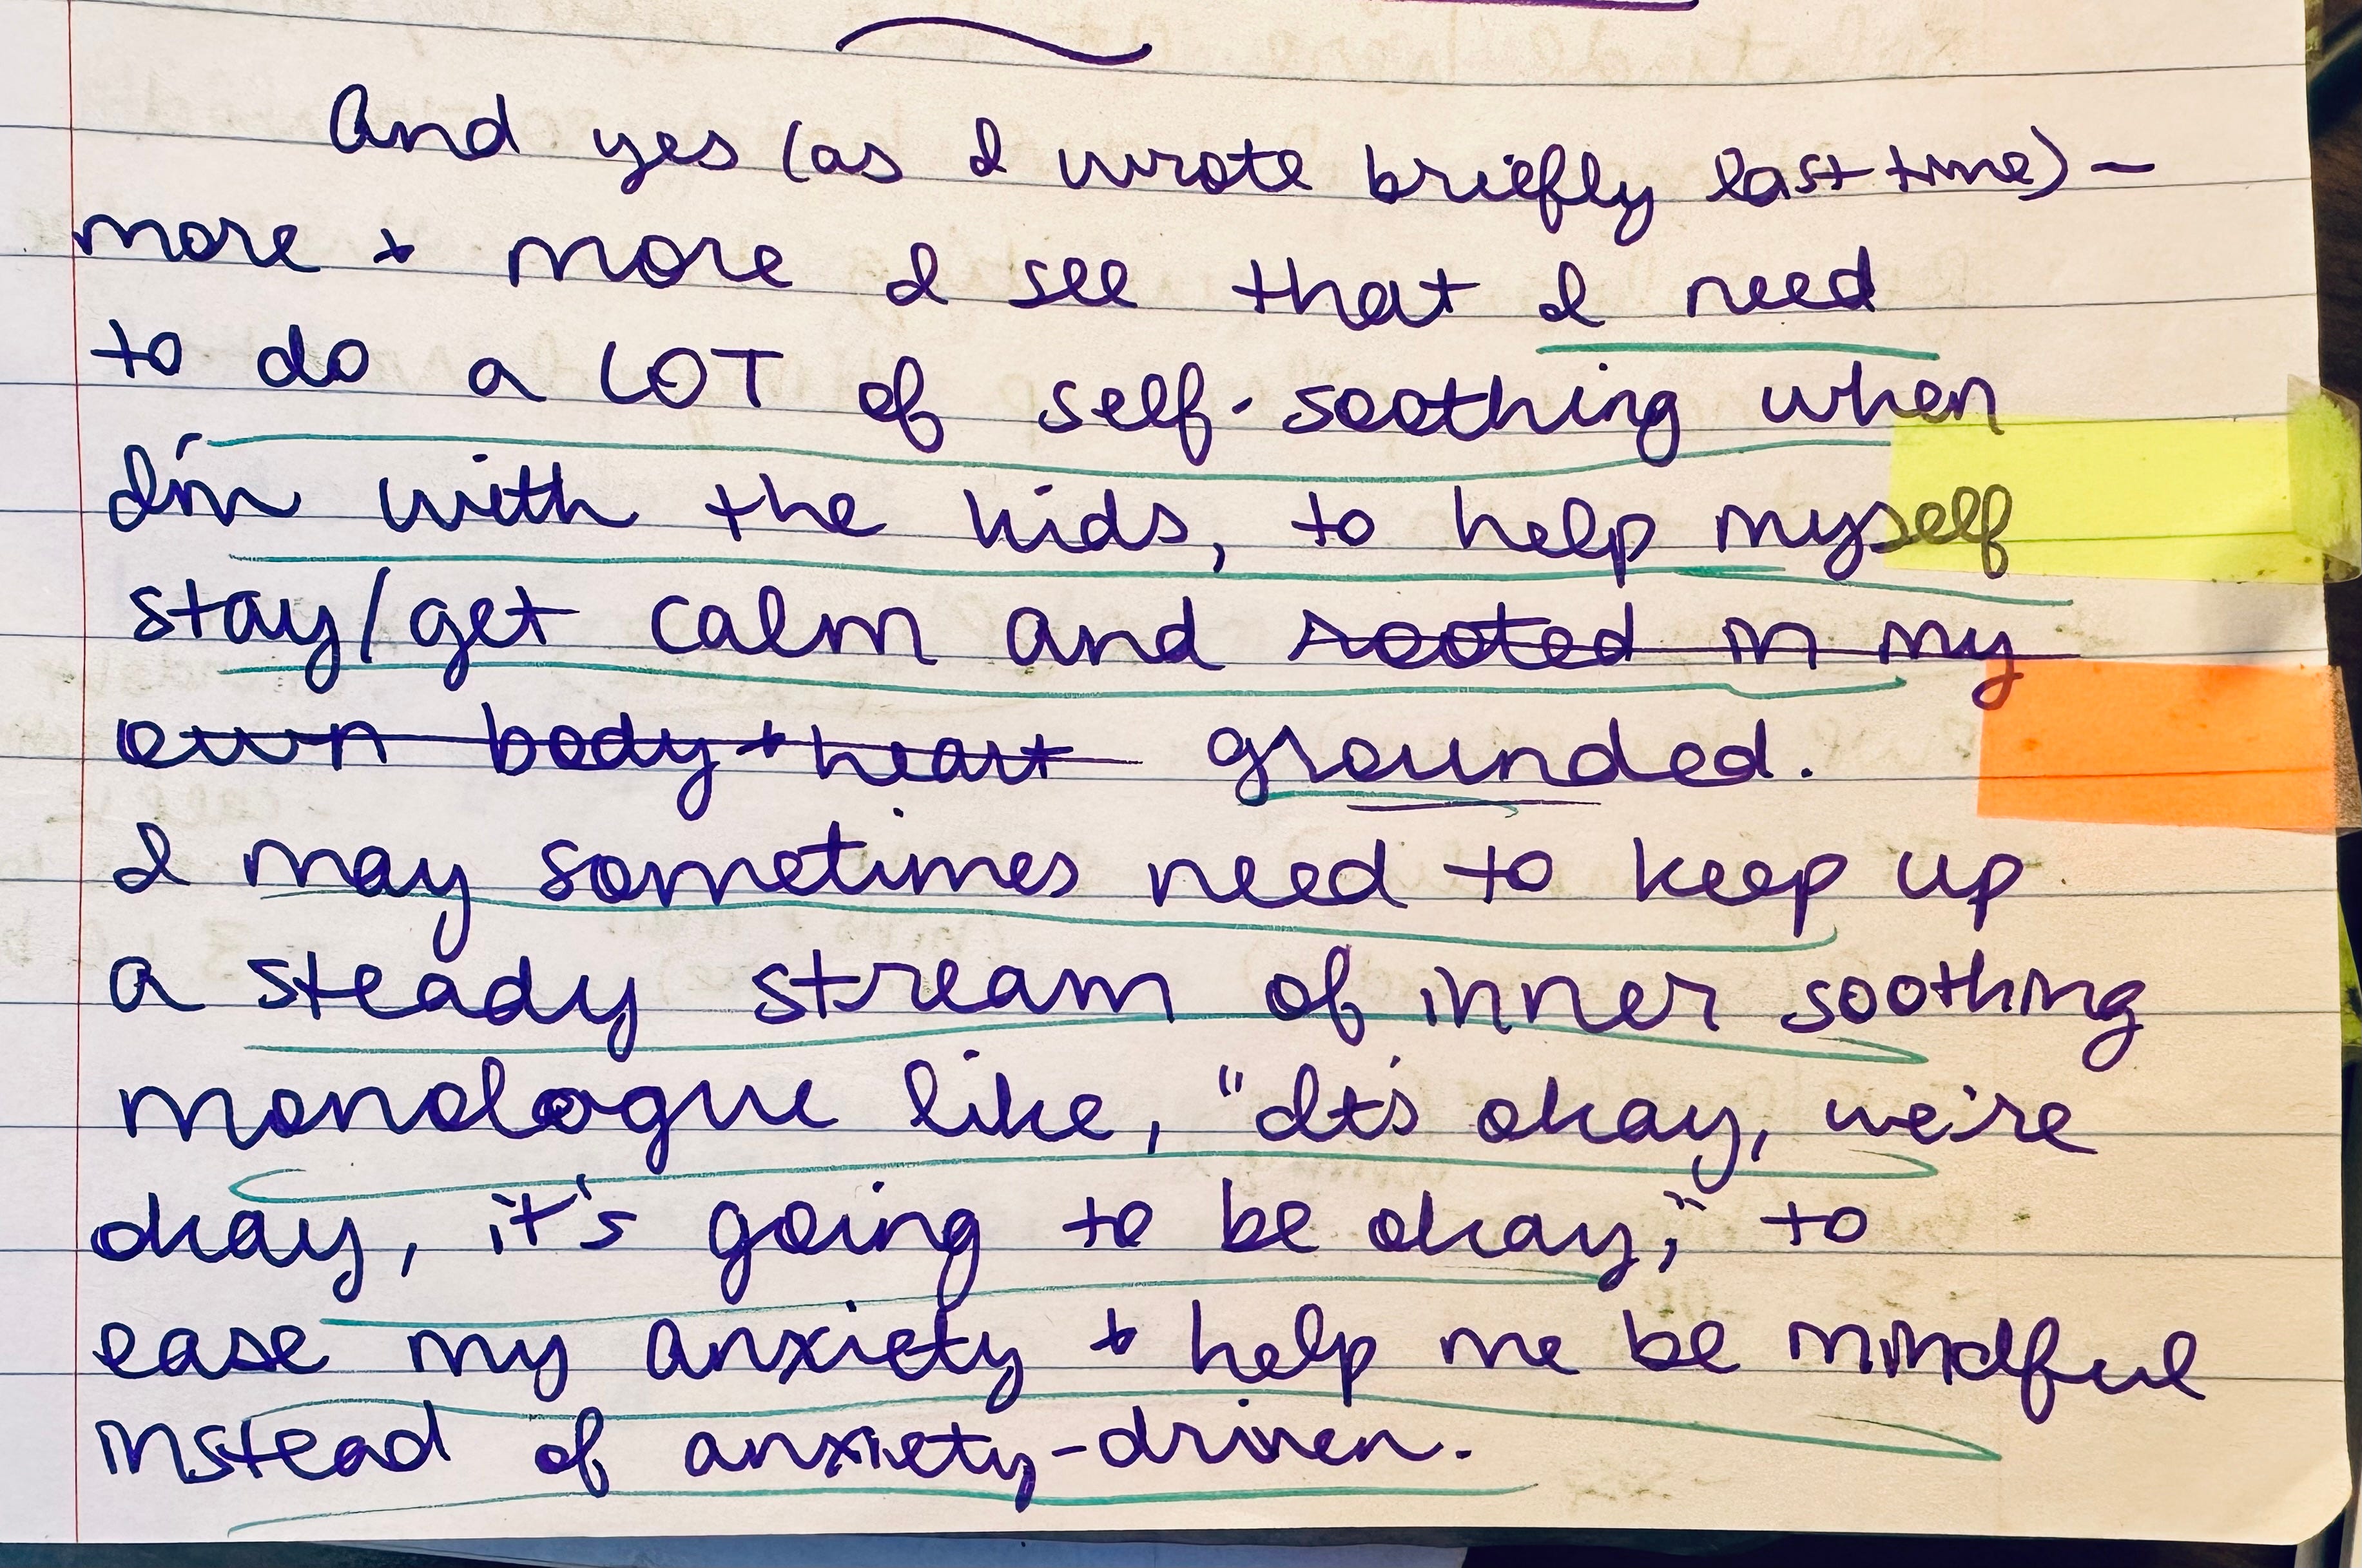 And yes (as I wrote briefly last time) –
more + more I see that I need
to do a LOT of self-soothing when
I'm with the kids, to help myself
stay/get calm and rooted in my
own body + heart grounded.
I may sometimes need to keep up
a steady stream of inner soothing
monologue like, "It's okay, we're
okay, it's going to be okay," to
ease my anxiety + help me be mindful
instead of anxiety-driven.